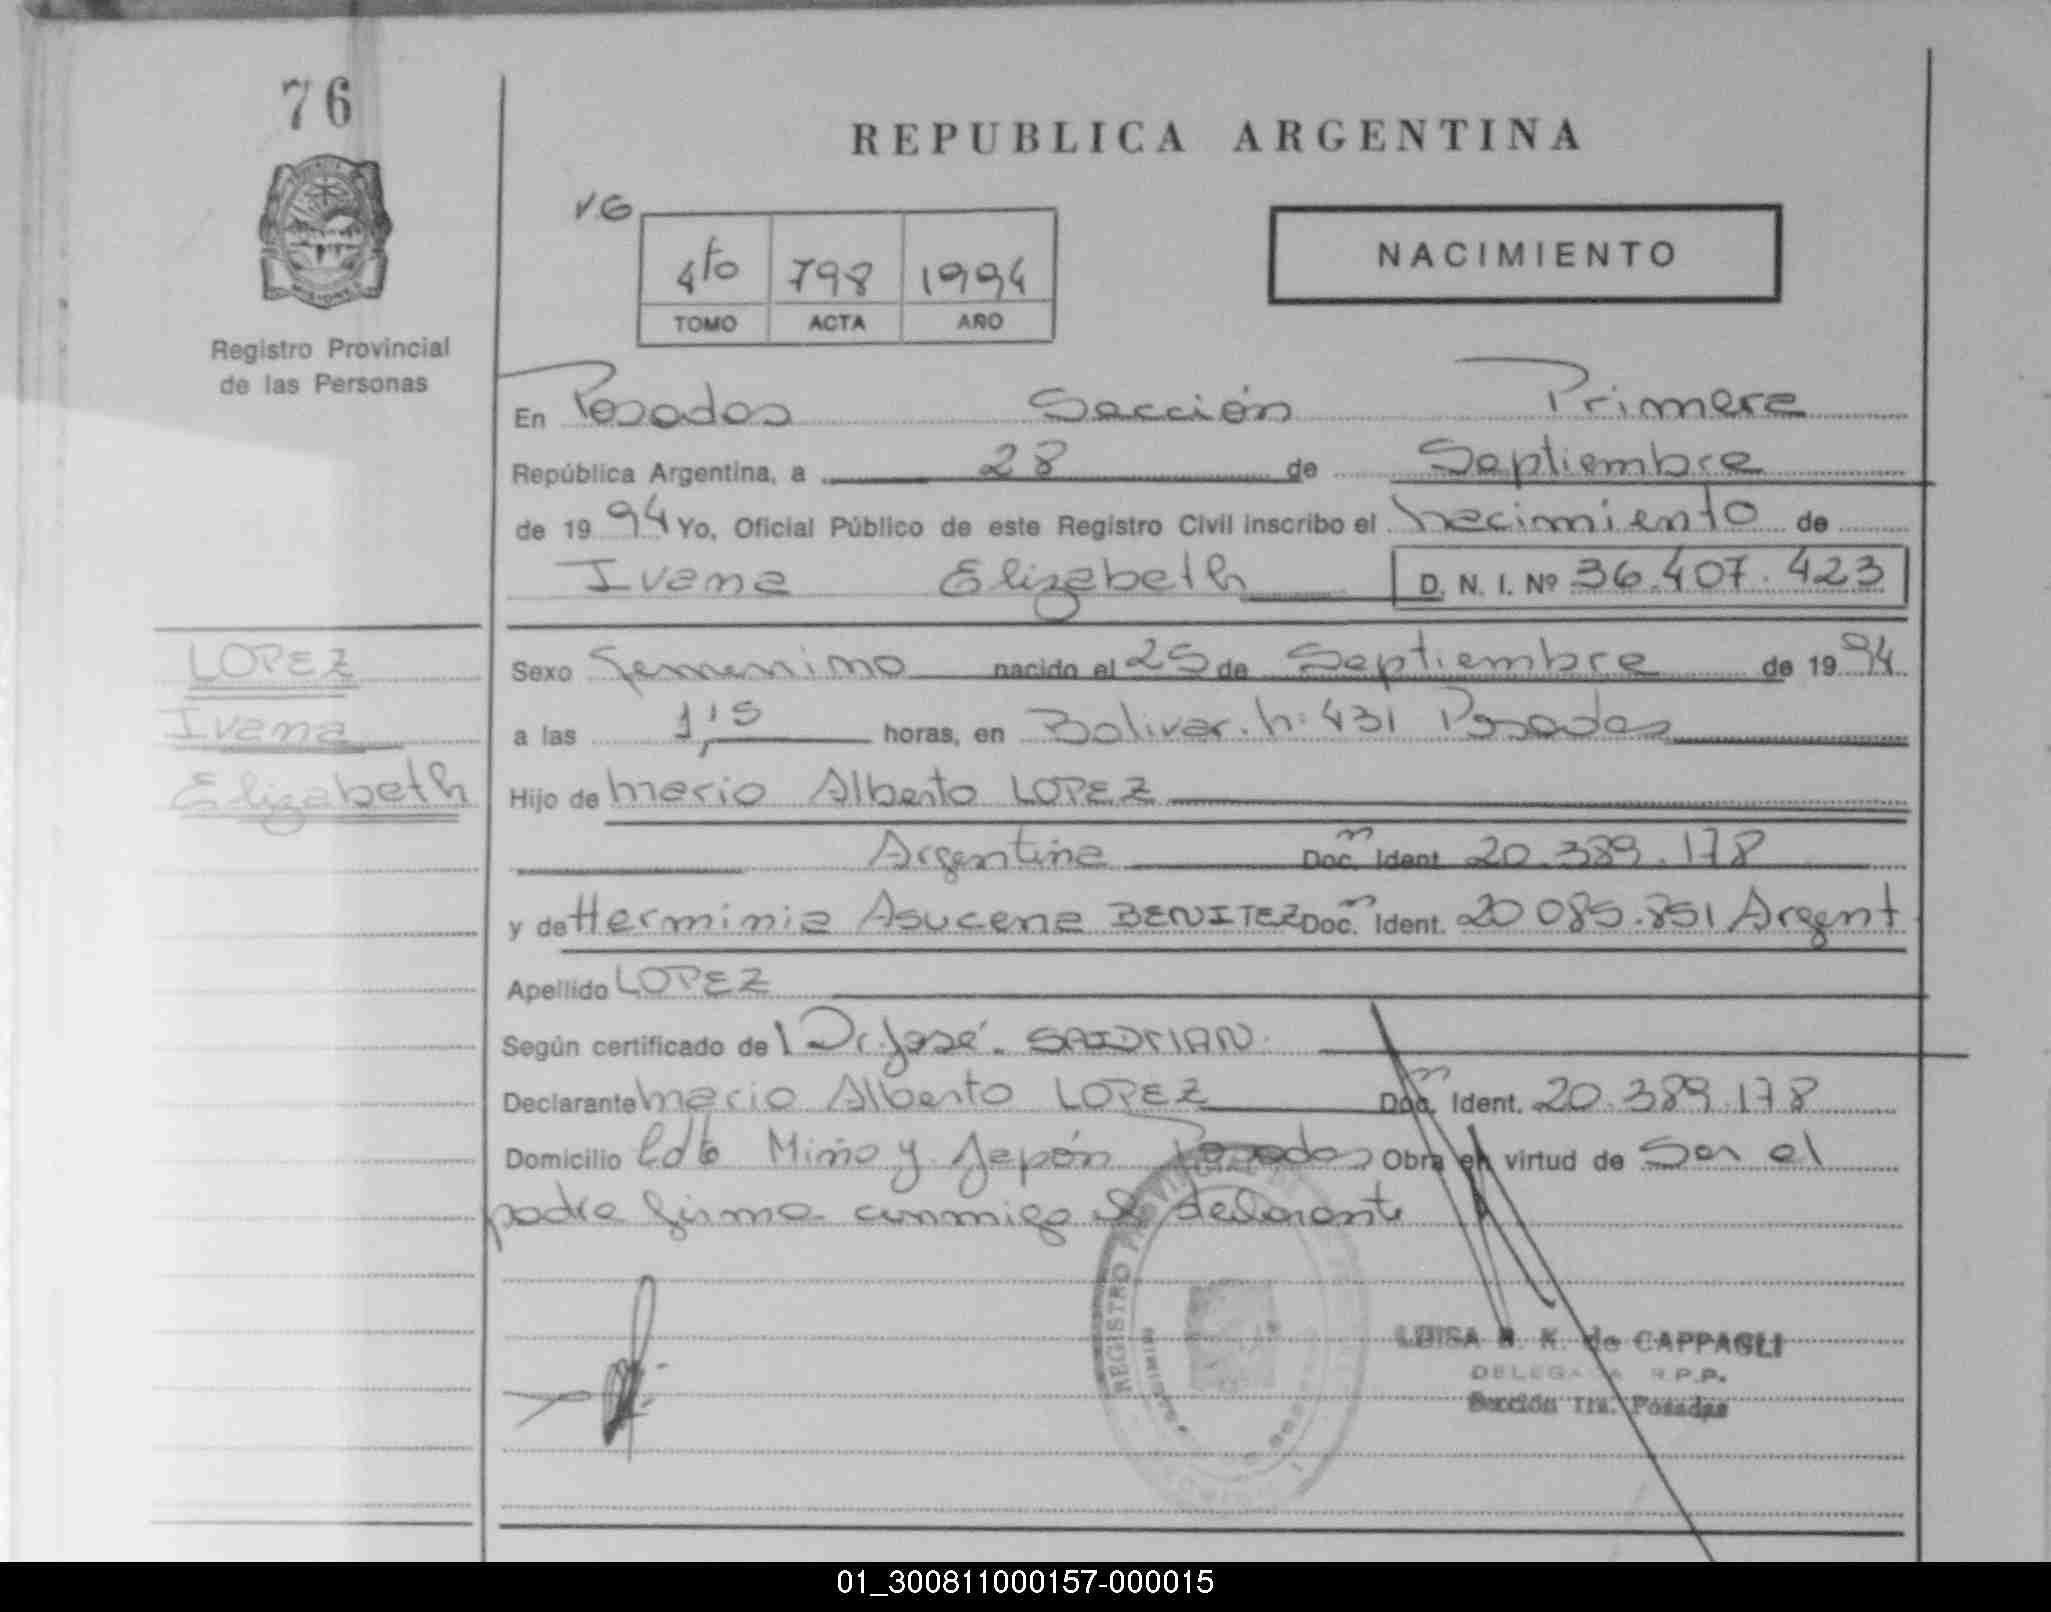 76
REPUBLICA ARGENTINA
VG
4to 798 1994
TOMO ACTA AÑO
NACIMIENTO
Registro Provincial
de las Personas
En Posadas Sección Primera
República Argentina, a 28 de Septiembre
de 19 94 Yo, Oficial Público de este Registro Civil inscribo el nacimiento de
Ivana Elizabeth D. N. I. Nº 36.407.423
LOPEZ
Ivana
Elizabeth
Sexo femenino nacido el 25 de Septiembre de 19 94
a las 1,15 horas, en Bolivar. n: 431 Posadas
Hijo de Mario Alberto LOPEZ
Argentina Doc. Ident 20.389.178
y de Herminia Asucena BENITEZ Doc. Ident. 20 085.851 Argent
Apellido LOPEZ
Según certificado de Dr. José.
Declarante Mario Alberto LOPEZ Doc. Ident. 20.389.178
Domicilio Miño y Japón Posadas Obra en virtud de Ser el
padre firma conmigo el declarante
REGISTRO PROVINCIAL DE
LUISA K. de CAPPAGLI
DELEGADA R.P.P.
Sección 1ra. Posadas
01_300811000157-000015